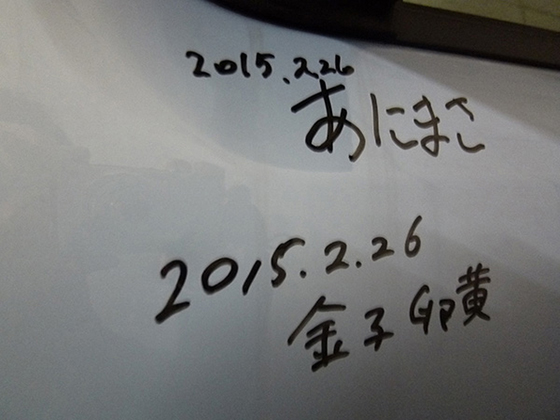 2015.2.26
あにまさ
2015.2.26
金子卵黄